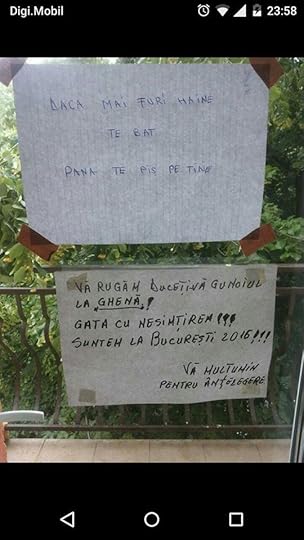 Digi.Mobil
23:58
DACA MAI FURI HAINE
TE BAT
PANA TE PIS PE TINE
VĂ RUGĂM DUCEȚIVĂ GUNOIUL
LA GHENĂ!
GATA CU NESIMȚIREA!!!
SUNTEM LA BUCUREȘTI 2016!!!
VĂ MULTUMIM
PENTRU ÂNȚELEGERE